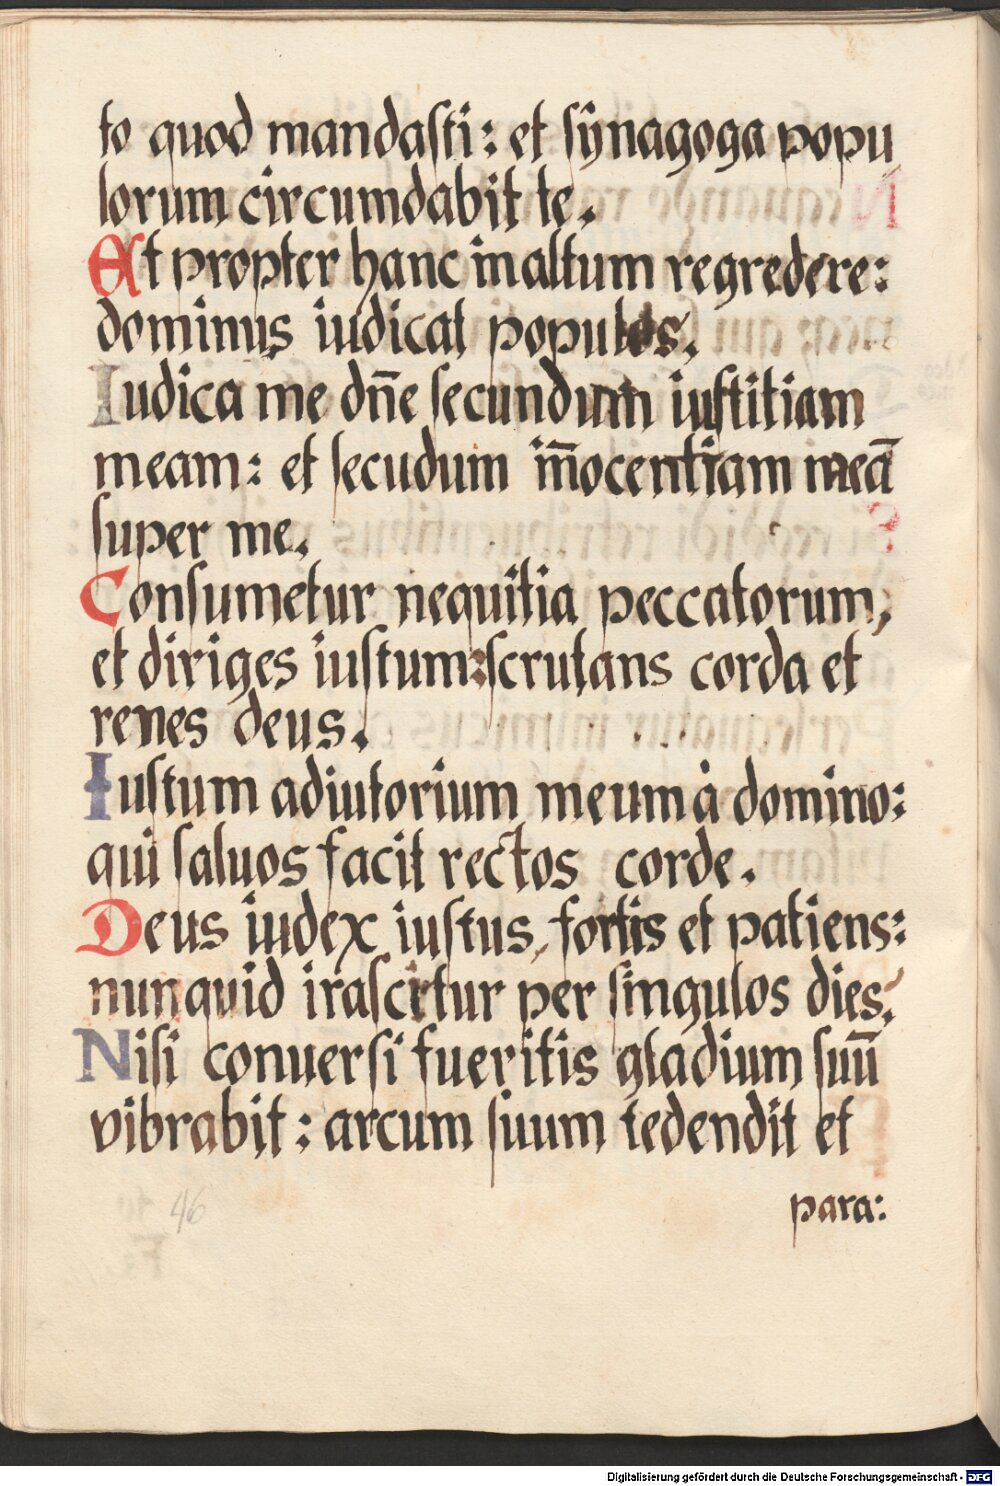 to quod mandasti: et synagoga popu
lorum circumdabit te.
Et propter hanc in altum regredere:
dominus iudicat populos.
Iudica me dñe secundum iustitiam
meam: et secudum iñocentiam meā
super me.
Consumetur nequitia peccatorum,
et diriges iustum: scrutans corda et
renes deus.
Iustum adiutorium meum à domino:
qui saluos facit rectos corde.
Deus iudex iustus, fortis et patiens:
nunquid irascitur per singulos dies.
Nisi conuersi fueritis gladium suū
vibrabit: arcum suum tedendit et
para:
46
Digitalisierung gefördert durch die Deutsche Forschungsgemeinschaft - DFG